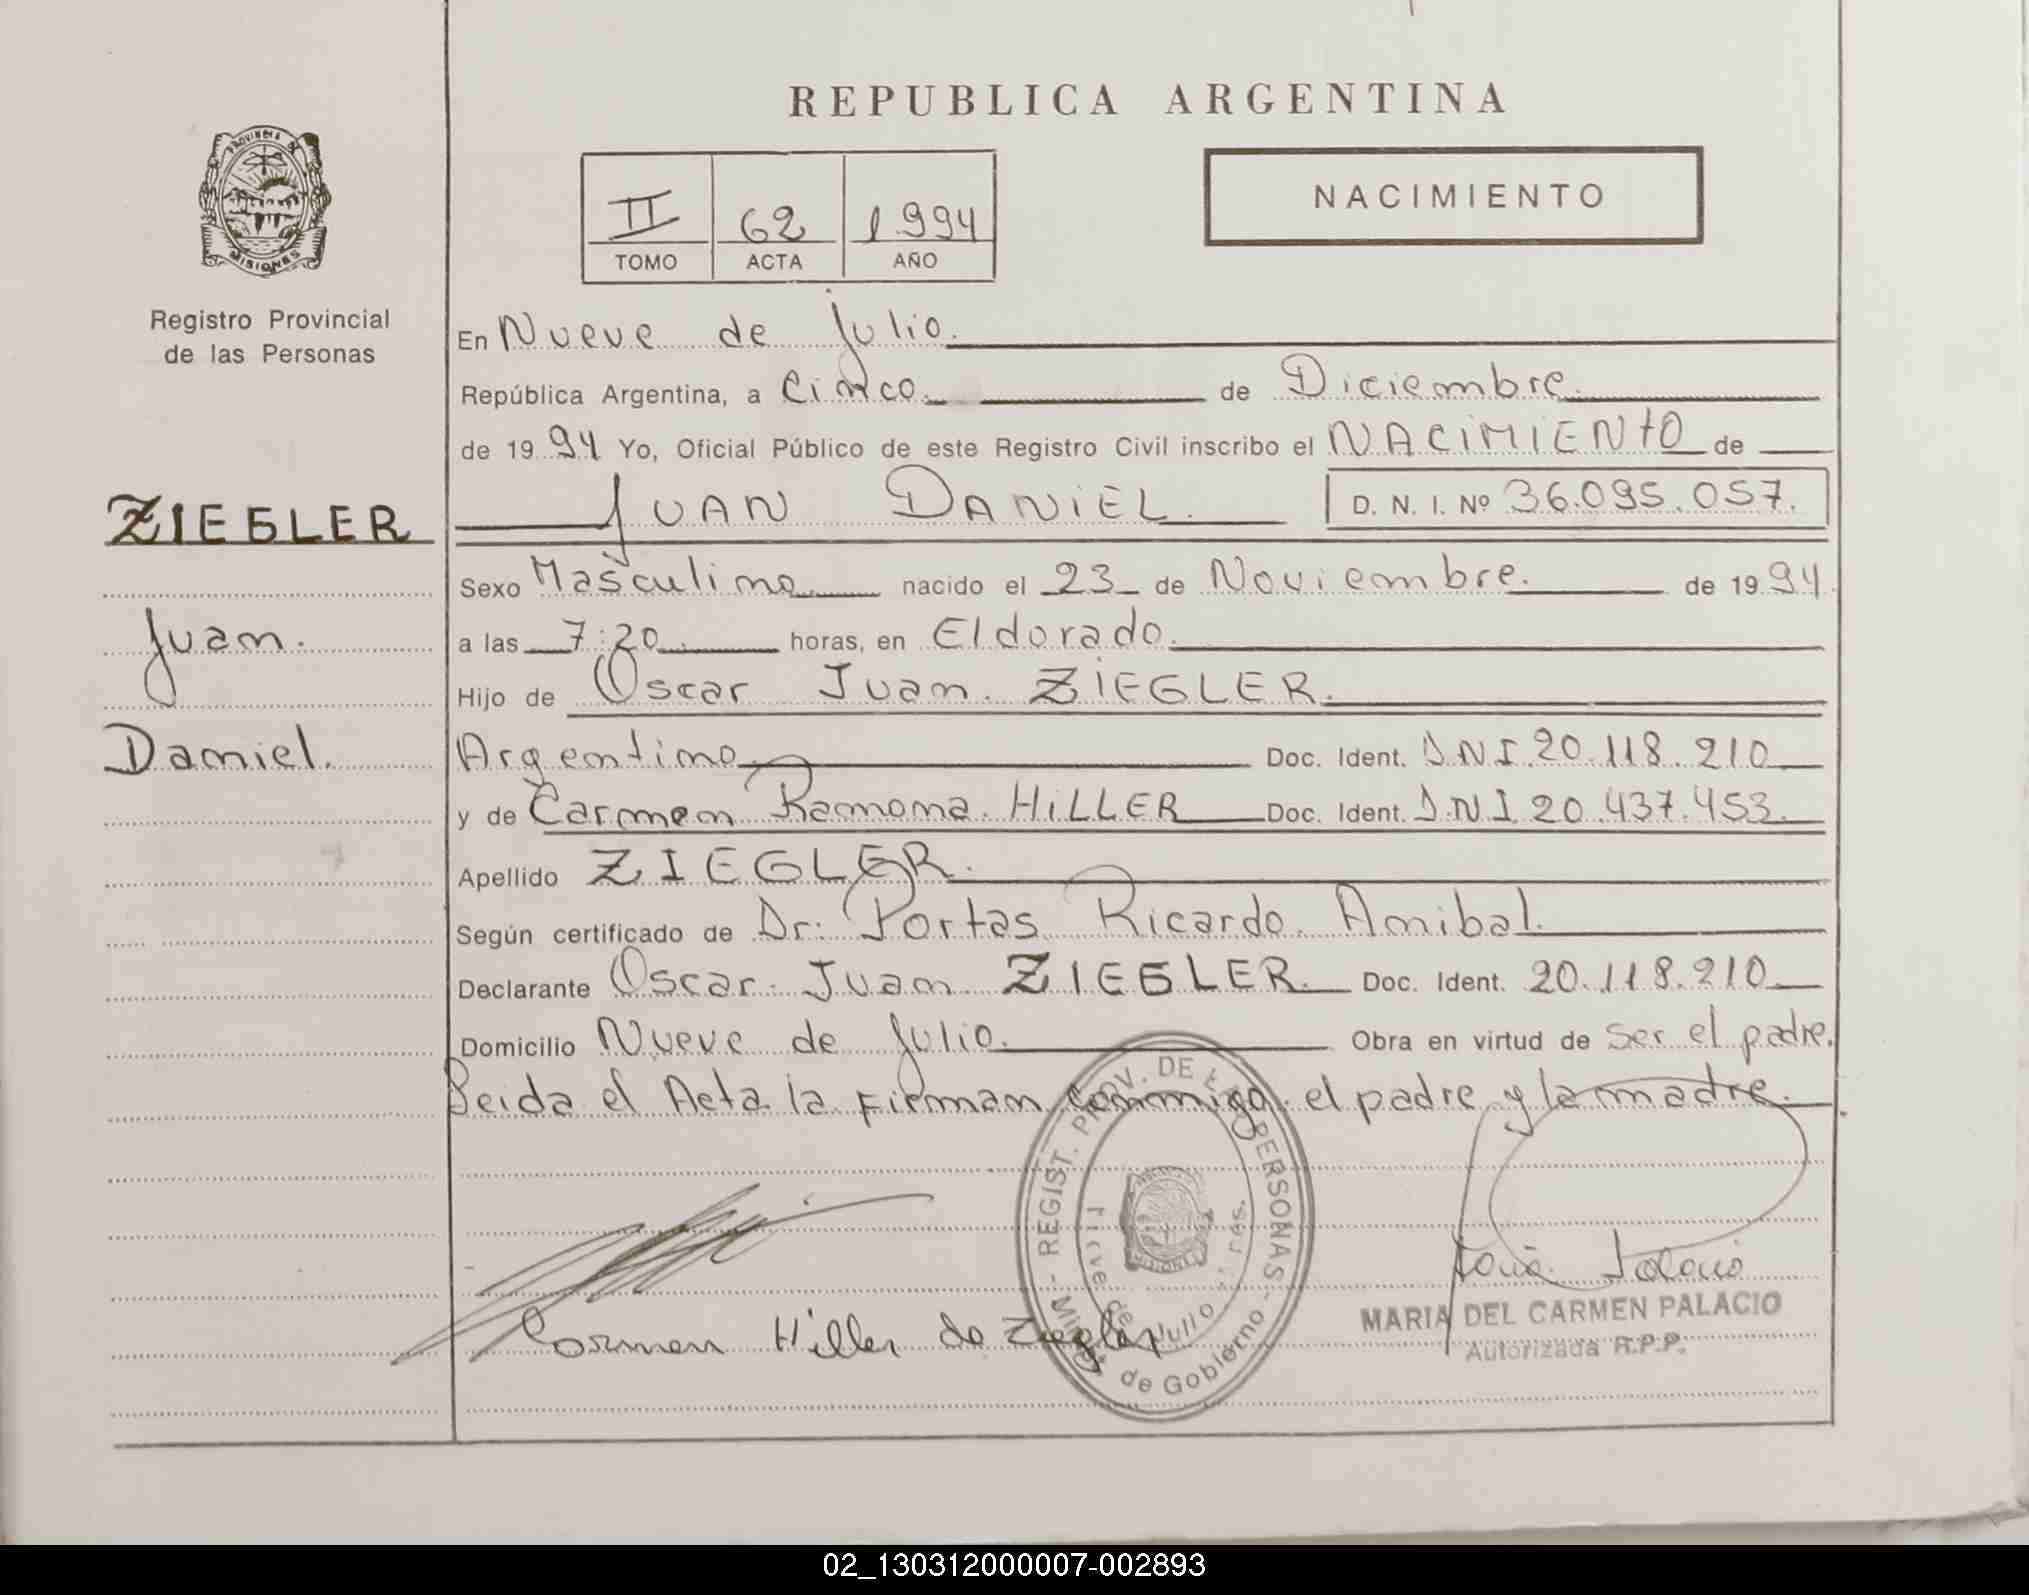 REPUBLICA ARGENTINA
PROVINCIA DE
MISIONES
Registro Provincial
de las Personas
II 62 1994
TOMO ACTA AÑO
NACIMIENTO
En Nueve de Julio.
República Argentina, a Cinco. de Diciembre.
de 1994 Yo, Oficial Público de este Registro Civil inscribo el NACIMIENTO de
ZIEGLER
JUAN DANIEL. D. N. I. Nº 36.095.057.
Sexo Masculino nacido el 23 de Noviembre. de 1994
Juan.
a las 7:20 horas, en Eldorado.
Hijo de Oscar Juan. ZIEGLER.
Daniel.
Argentino Doc. Ident. DNI 20.118.210
y de Carmen Ramona. HILLER Doc. Ident. D.N.I 20.437.453.
Apellido ZIEGLER.
Según certificado de Dr: Portas Ricardo. Anibal.
Declarante Oscar. Juan ZIEGLER. Doc. Ident. 20.118.210
Domicilio Nueve de Julio. Obra en virtud de Ser el padre.
Leida el Acta la Firman Conmigo el padre y la madre.
REGIST. PROV. DE LAS PERSONAS
MISIONES
de Julio
de Gobierno
Carmen Hiller de Ziegler
MARIA DEL CARMEN PALACIO
Autorizada R.P.P.
02_130312000007-002893